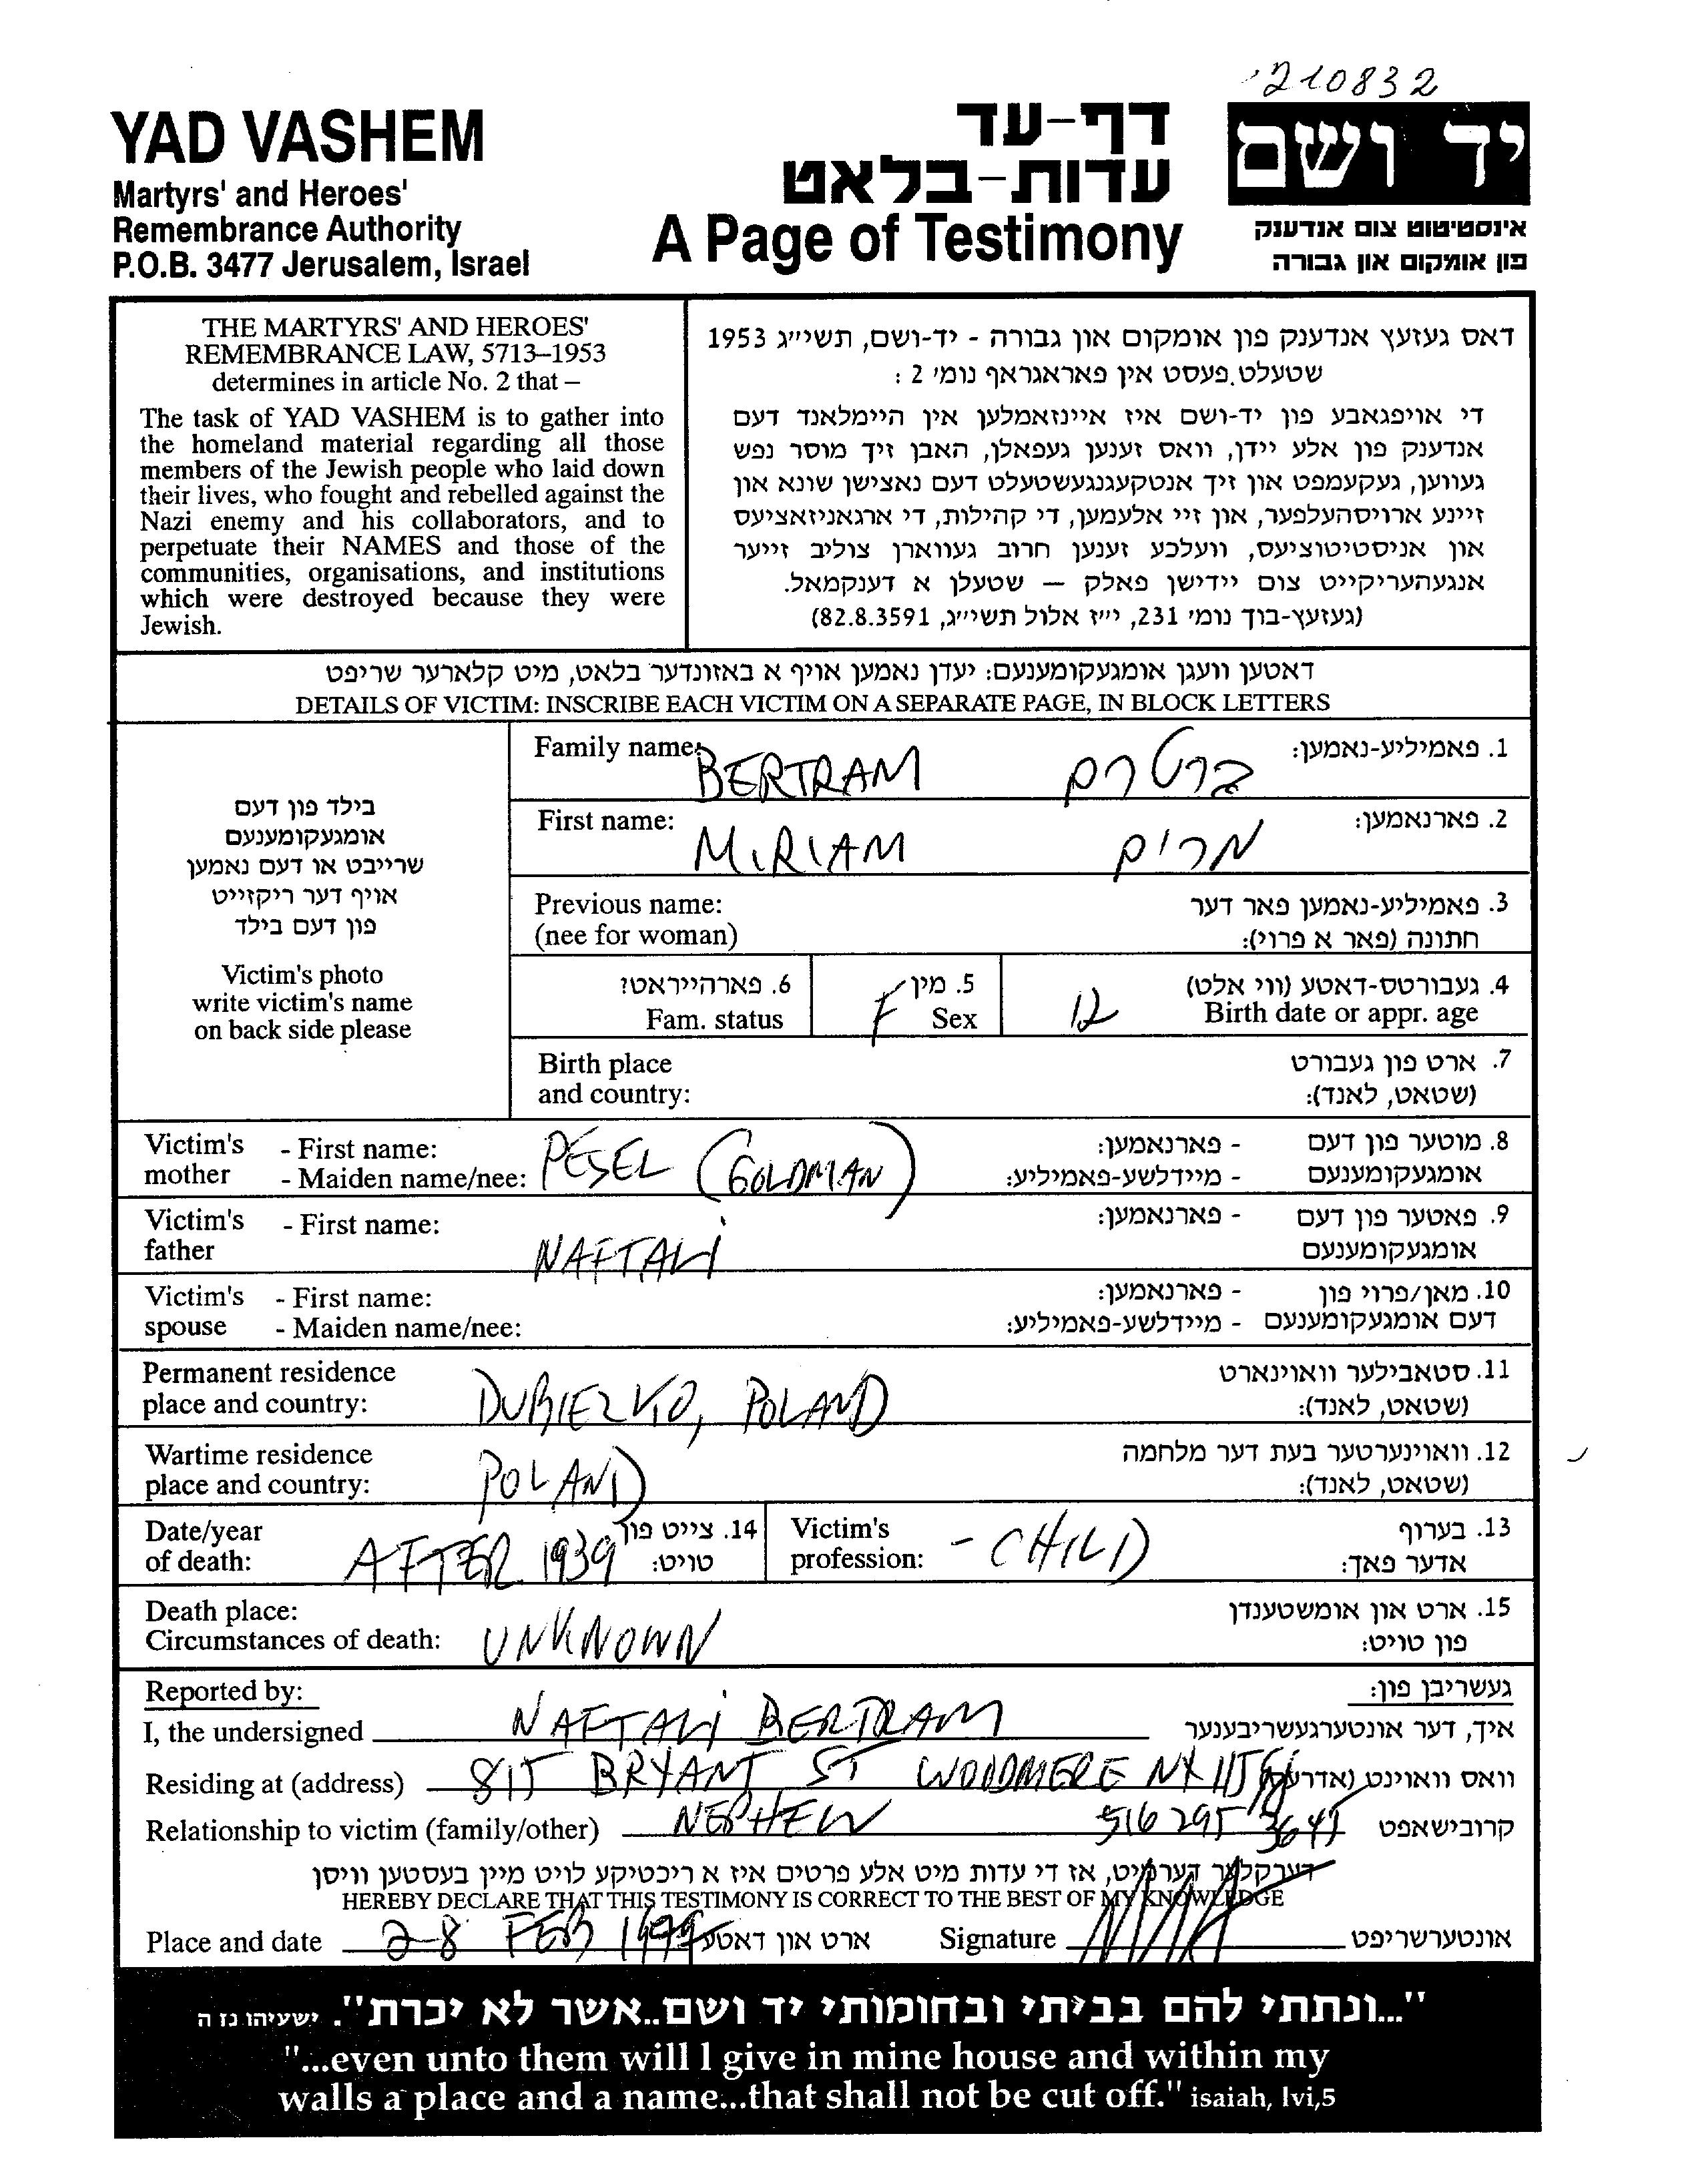 210832
YAD VASHEM
Martyrs' and Heroes'
Remembrance Authority
P.O.B. 3477 Jerusalem, Israel
דף-עד
עדות-בלאט
A Page of Testimony
יד ושם
אינסטיטוט צום אנדענק
פון אומקום און גבורה
THE MARTYRS' AND HEROES'
REMEMBRANCE LAW, 5713–1953
determines in article No. 2 that –
The task of YAD VASHEM is to gather into
the homeland material regarding all those
members of the Jewish people who laid down
their lives, who fought and rebelled against the
Nazi enemy and his collaborators, and to
perpetuate their NAMES and those of the
communities, organisations, and institutions
which were destroyed because they were
Jewish.
דאס געזעץ אנדענק פון אומקום און גבורה - יד-ושם, תשי״ג 1953
שטעלט פעסט אין פאראגראף נומ׳ 2 :
די אויפגאבע פון יד-ושם איז איינזאמלען אין היימלאנד דעם
אנדענק פון אלע יידן, וואס זענען געפאלן, האבן זיך מוסר נפש
געווען, געקעמפט און זיך אנטקעגנגעשטעלט דעם נאצישן שונא און
זיינע ארויסהעלפער, און זיי אלעמען, די קהילות, די ארגאניזאציעס
און אניסטיטוציעס, וועלכע זענען חרוב געווארן צוליב זייער
אנגעהעריקייט צום יידישן פאלק — שטעלן א דענקמאל.
(געזעץ-בוך נומ׳ 231, י״ז אלול תשי״ג, 82.8.3591)
דאטען וועגן אומגעקומענעם: יעדן נאמען אויף א באזונדער בלאט, מיט קלארער שריפט
DETAILS OF VICTIM: INSCRIBE EACH VICTIM ON A SEPARATE PAGE, IN BLOCK LETTERS
בילד פון דעם
אומגעקומענעם
שרייבט או דעם נאמען
אויף דער ריקזייט
פון דעם בילד
Victim's photo
write victim's name
on back side please
Family name: BERTRAM ברטרם 1. פאמיליע-נאמען:
First name: MIRIAM מרים 2. פארנאמען:
Previous name: 3. פאמיליע-נאמען פאר דער
(nee for woman) חתונה (פאר א פרוי):
6. פארהייראט? 5. מין 4. געבורטס-דאטע (ווי אלט)
Fam. status F Sex 12 Birth date or appr. age
Birth place 7. ארט פון געבורט
and country: (שטאט, לאנד):
Victim's - First name: PESEL (GOLDMAN) - פארנאמען: 8. מוטער פון דעם
mother - Maiden name/nee: - מיידלשע-פאמיליע: אומגעקומענעם
Victim's - First name: - פארנאמען: 9. פאטער פון דעם
father NAFTALI אומגעקומענעם
Victim's - First name: - פארנאמען: 10. מאן/פרוי פון
spouse - Maiden name/nee: - מיידלשע-פאמיליע: דעם אומגעקומענעם
Permanent residence 11. סטאבילער וואוינארט
place and country: DUBIEZKO, POLAND (שטאט, לאנד):
Wartime residence 12. וואוינערטער בעת דער מלחמה
place and country: POLAND (שטאט, לאנד):
Date/year 14. צייט פון Victim's 13. בערוף
of death: AFTER 1939 טויט: profession: - CHILD אדער פאך:
Death place: 15. ארט און אומשטענדן
Circumstances of death: UNKNOWN פון טויט:
Reported by: געשריבן פון:
I, the undersigned NAFTALI BERTRAM איך, דער אונטערגעשריבענער
Residing at (address) 815 BRYANT ST WOODMERE NY וואס וואוינט
Relationship to victim (family/other) NEPHEW 516 295 3641 קרובישאפט
דערקלער דערמיט, אז די עדות מיט אלע פרטים איז א ריכטיקע לויט מיין בעסטען וויסן
HEREBY DECLARE THAT THIS TESTIMONY IS CORRECT TO THE BEST OF MY KNOWLEDGE
Place and date 28 FEB 1999 ארט און דאטע Signature אונטערשריפט
"...ונתתי להם בביתי ובחומותי יד ושם..אשר לא יכרת". ישעיהו נז ה
"...even unto them will I give in mine house and within my
walls a place and a name...that shall not be cut off." isaiah, lvi,5